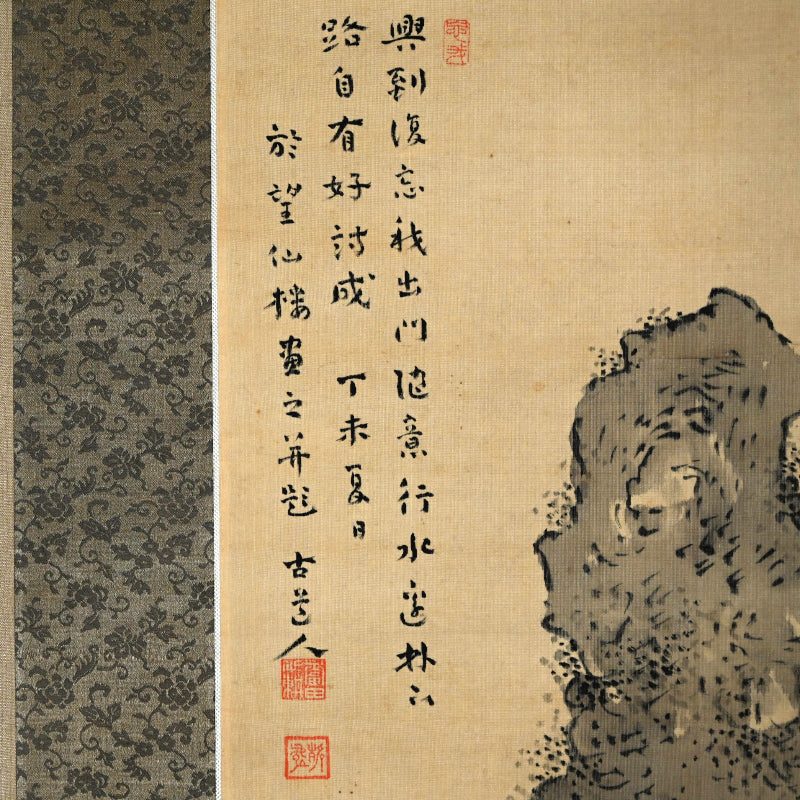 興到復忘我出門随意行水邊林下
路自有好詩成 丁未夏日
於望仙楼畫之并題 古道人